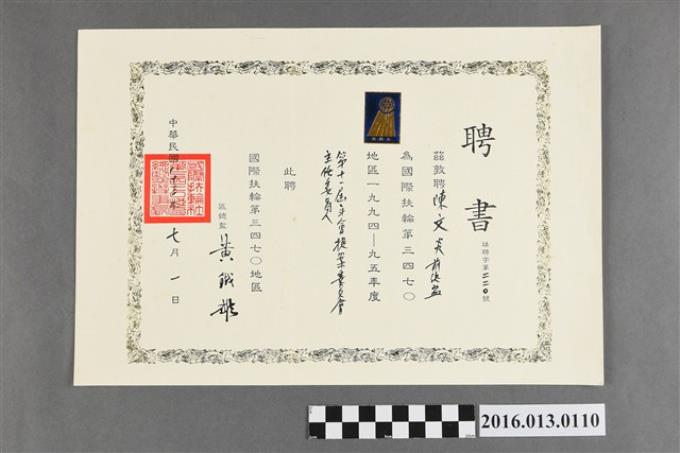 聘書
誠聘字第二二〇號
茲敦聘陳文炎前總監
為國際扶輪第三四七〇
地區一九九四—九五年度
第十一屆年會提案委員會
主任委員
此聘
國際扶輪第三四七〇地區
區總監 黃鐵雄
中華民國八十三年七月一日
2016.013.0110